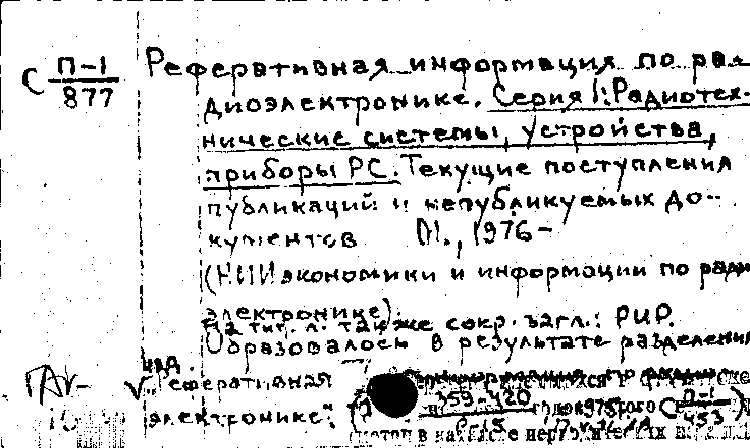 С П-1/877
Реферативная информация по ра-
диоэлектронике. Серия 1: Радиотех-
нические системы, устройства,
приборы РС. Текущие поступления
публикаций и непубликуемых до-
кументов М., 1976-
(НИИ экономики и информации по радио
электронике).
На тит. л. также сокр. загл.: РИР.
Образовалось в результате разделения
изд.
Реферативная
359-420
электронике:
Р-15
П-1/453